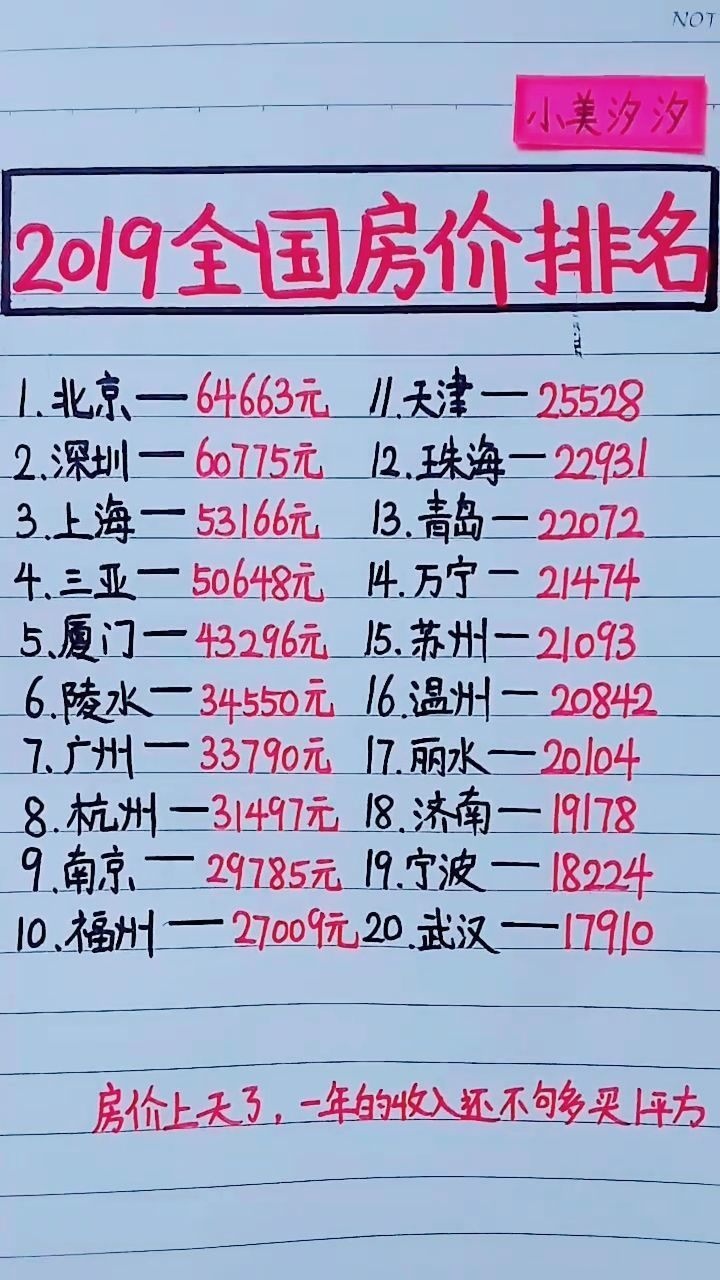 NOT
小美汐汐
2019全国房价排名
1.北京—64663元 11.天津—25528
2.深圳—60775元 12.珠海—22931
3.上海—53166元 13.青岛—22072
4.三亚—50648元 14.万宁—21474
5.厦门—43296元 15.苏州—21093
6.陵水—34550元 16.温州—20842
7.广州—33790元 17.丽水—20104
8.杭州—31497元 18.济南—19178
9.南京—29785元 19.宁波—18224
10.福州—27009元 20.武汉—17910
房价上天了,一年的收入还不句多买1平方